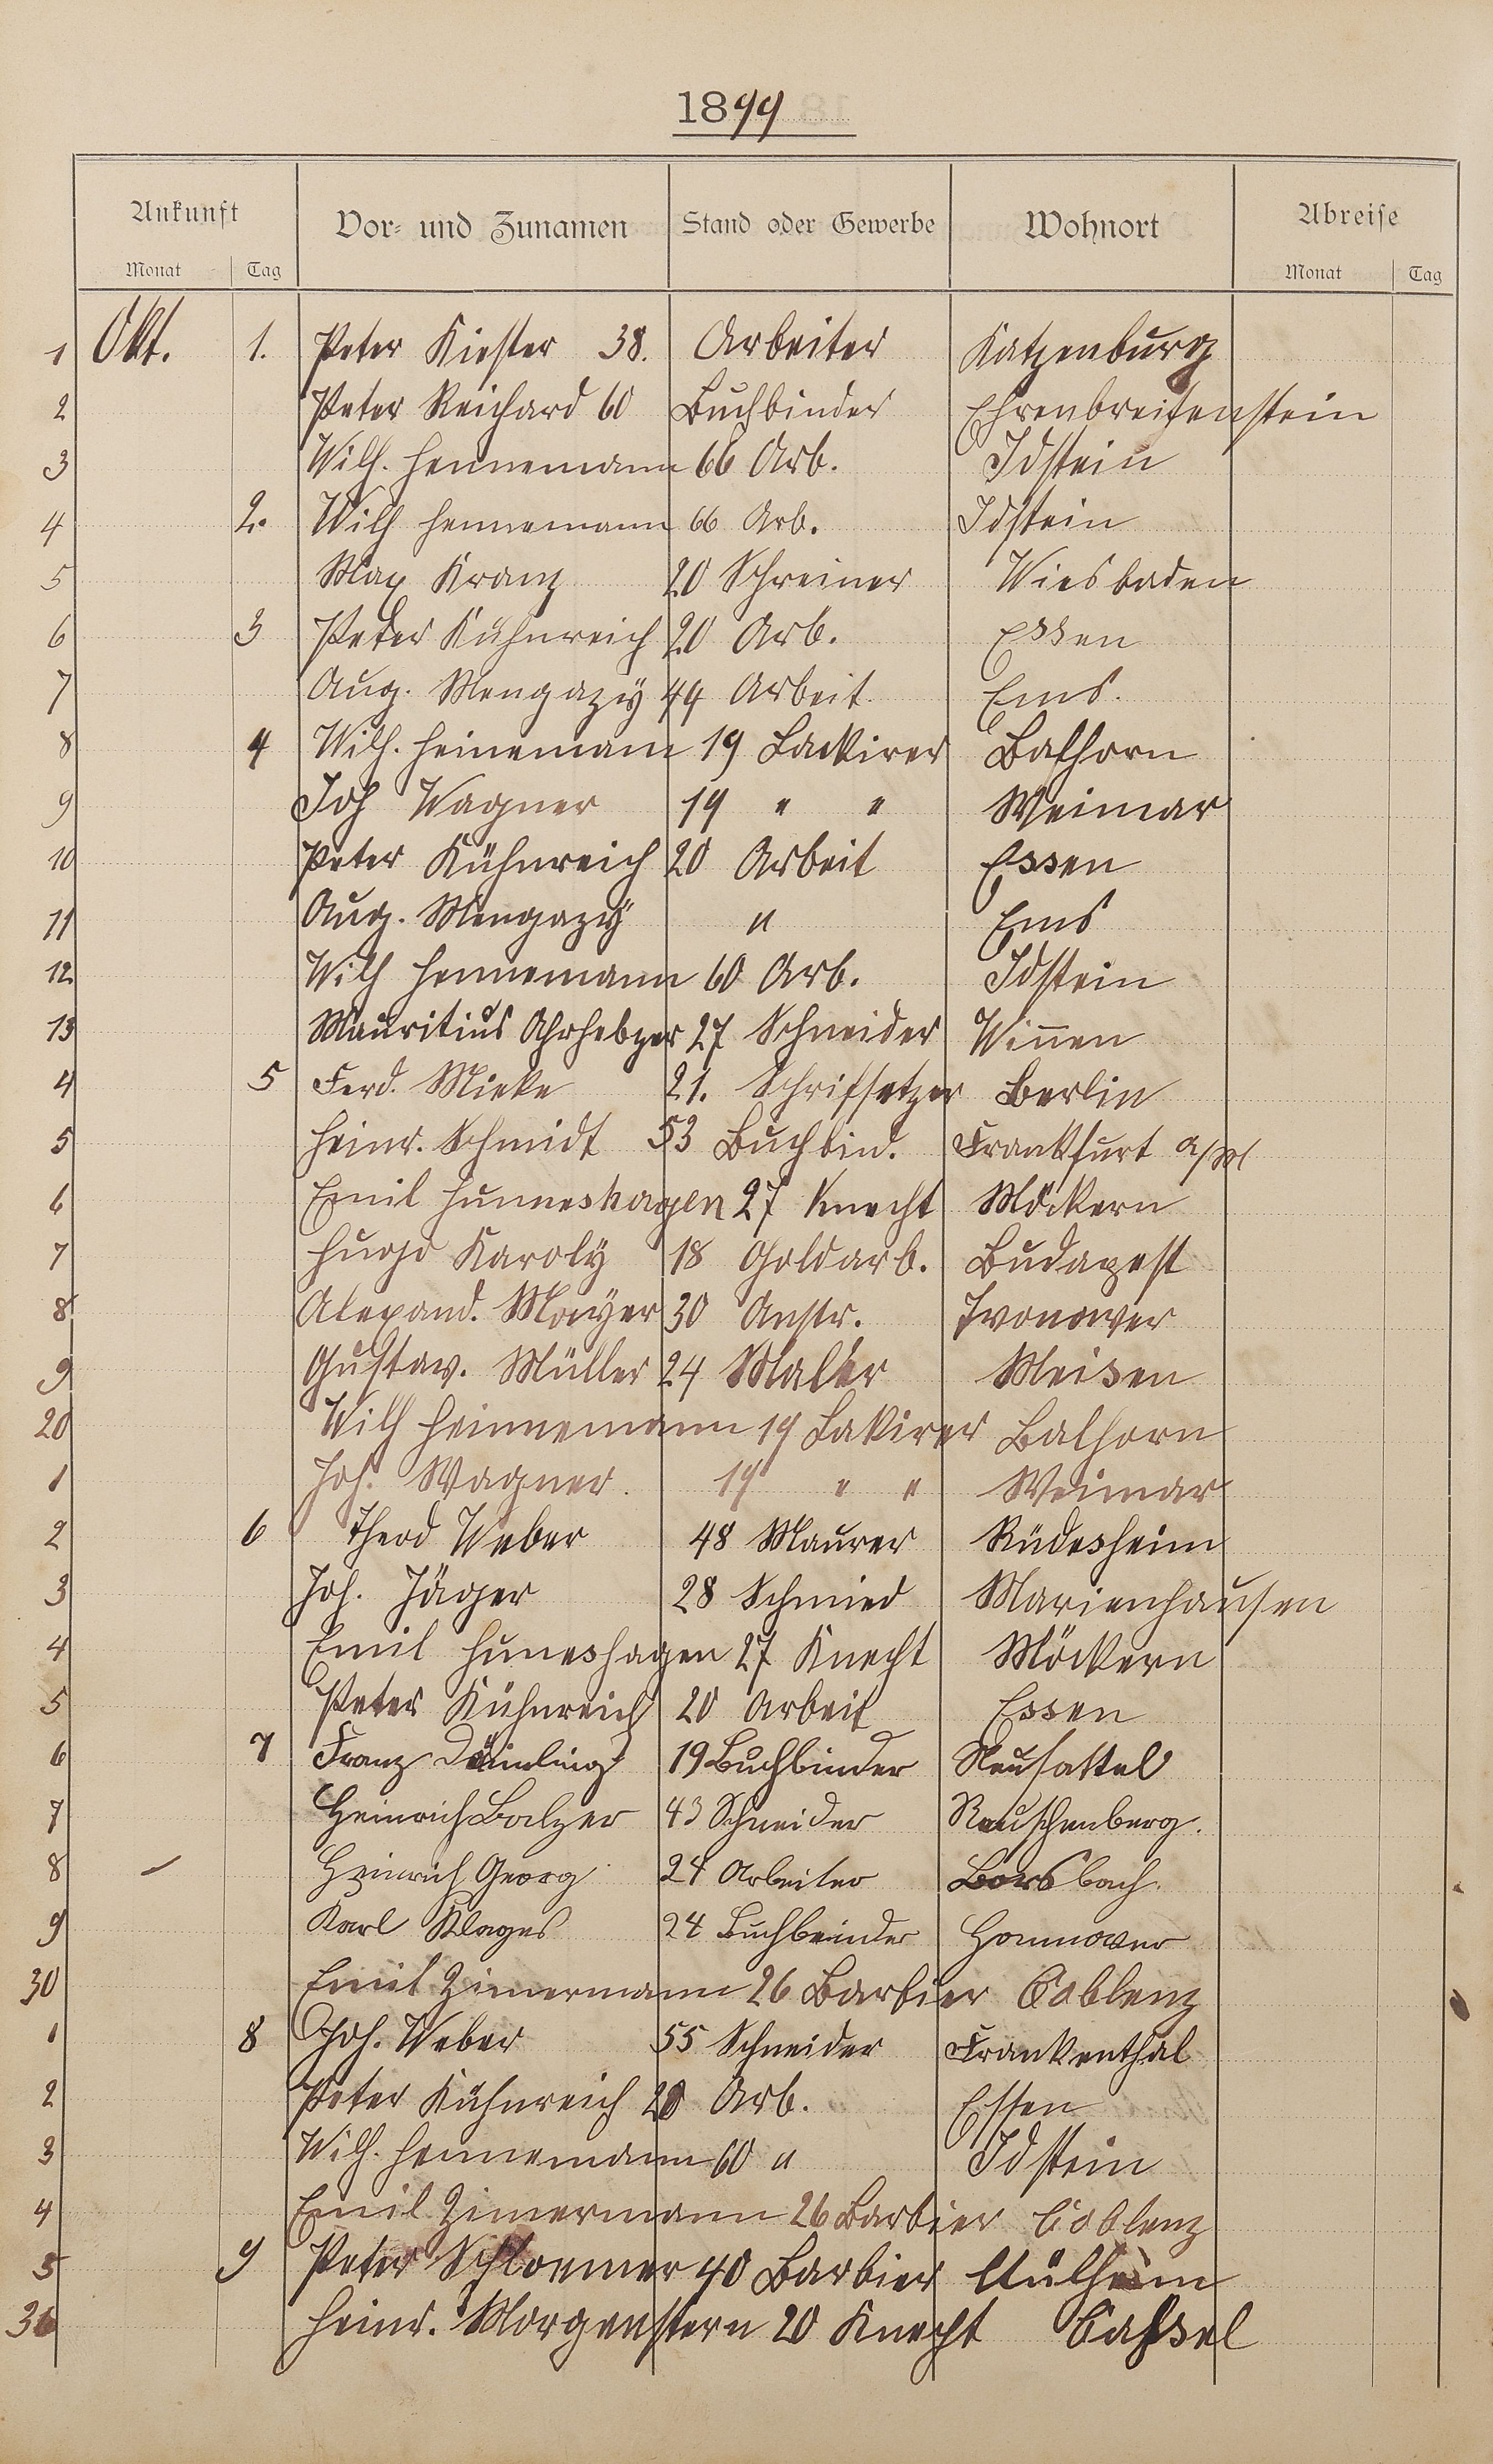 1899
Ankunft Vor- und Zunamen Stand oder Gewerbe Wohnort Abreise
Monat Tag Monat Tag
1 Okt. 1. Peter Kiester 38. Arbeiter Katzenburg
2 Peter Reichard 60 Buchbinder Ehrenbreitenstein
3 Wilh. Hennemann 66 Arb. Idstein
4 2. Wilh Hennemann 66 Arb. Idstein
5 Max Kranz 20 Schreiner Wiesbaden
6 3 Peter Kühnreich 20 Arb. Essen
7 Aug. Mengazÿ 44 Arbeit. Ems.
8 4 Wilh. Heinemann 19 Lackirer Balhorn
9 Joh Wagner 19 " " Weimar
10 Peter Kühnreich 20 Arbeit Essen
11 Aug. Mengazÿ " Ems
12 Wilh Hennemann 60 Arb. Idstein
13 Mauritius 27 Schneider Winnen
4 5 Ferd. Mieke 21. Schrifsetzer Berlin
5 Heinr. Schmidt 53 Buchbind. Frankfurt a/M
6 Emil Hunneshagen 27 Knecht Möckern
7 Hugo Karolÿ 18 Goldarb. Budapest
8 Alexand. Mayer 30 Anstr.
9 Gustav. Müller 24 Maler Meisen
20 Wilh Heinnemann 19 Lakirer Balhorn
1 Joh. Wagner. 19 " " Weimar
2 6 Theod Weber 48 Maurer Rüdesheim
3 Joh. Jäger 28 Schmied Marienhausen
4 Emil Huneshagen 27 Knecht Möckern
5 Peter Kühnreich 20 Arbeit Essen
6 7 Franz Däimling 19 Buchbinder Neusattel
7 Heinrich Balzer 43 Schneider Rauschenberg.
8 Heinrich Georg 24 Arbeiter Borsbach.
9 Karl Klages 24 Buchbeinder Hannover
30 Emil Zimermann 26 Barbier Coblenz
1 8 Joh. Weber 55 Schneider Frankenthal
2 Peter Kühnreich 20 Arb. Essen
3 Wilh. Hennemann 60 " Idstein
4 Emil Zimermann 26 Barbier Coblenz
5 9 Peter Schloemer 40 Barbier Mülheim
36 Heinr. Morgenstern 20 Knecht Cassel